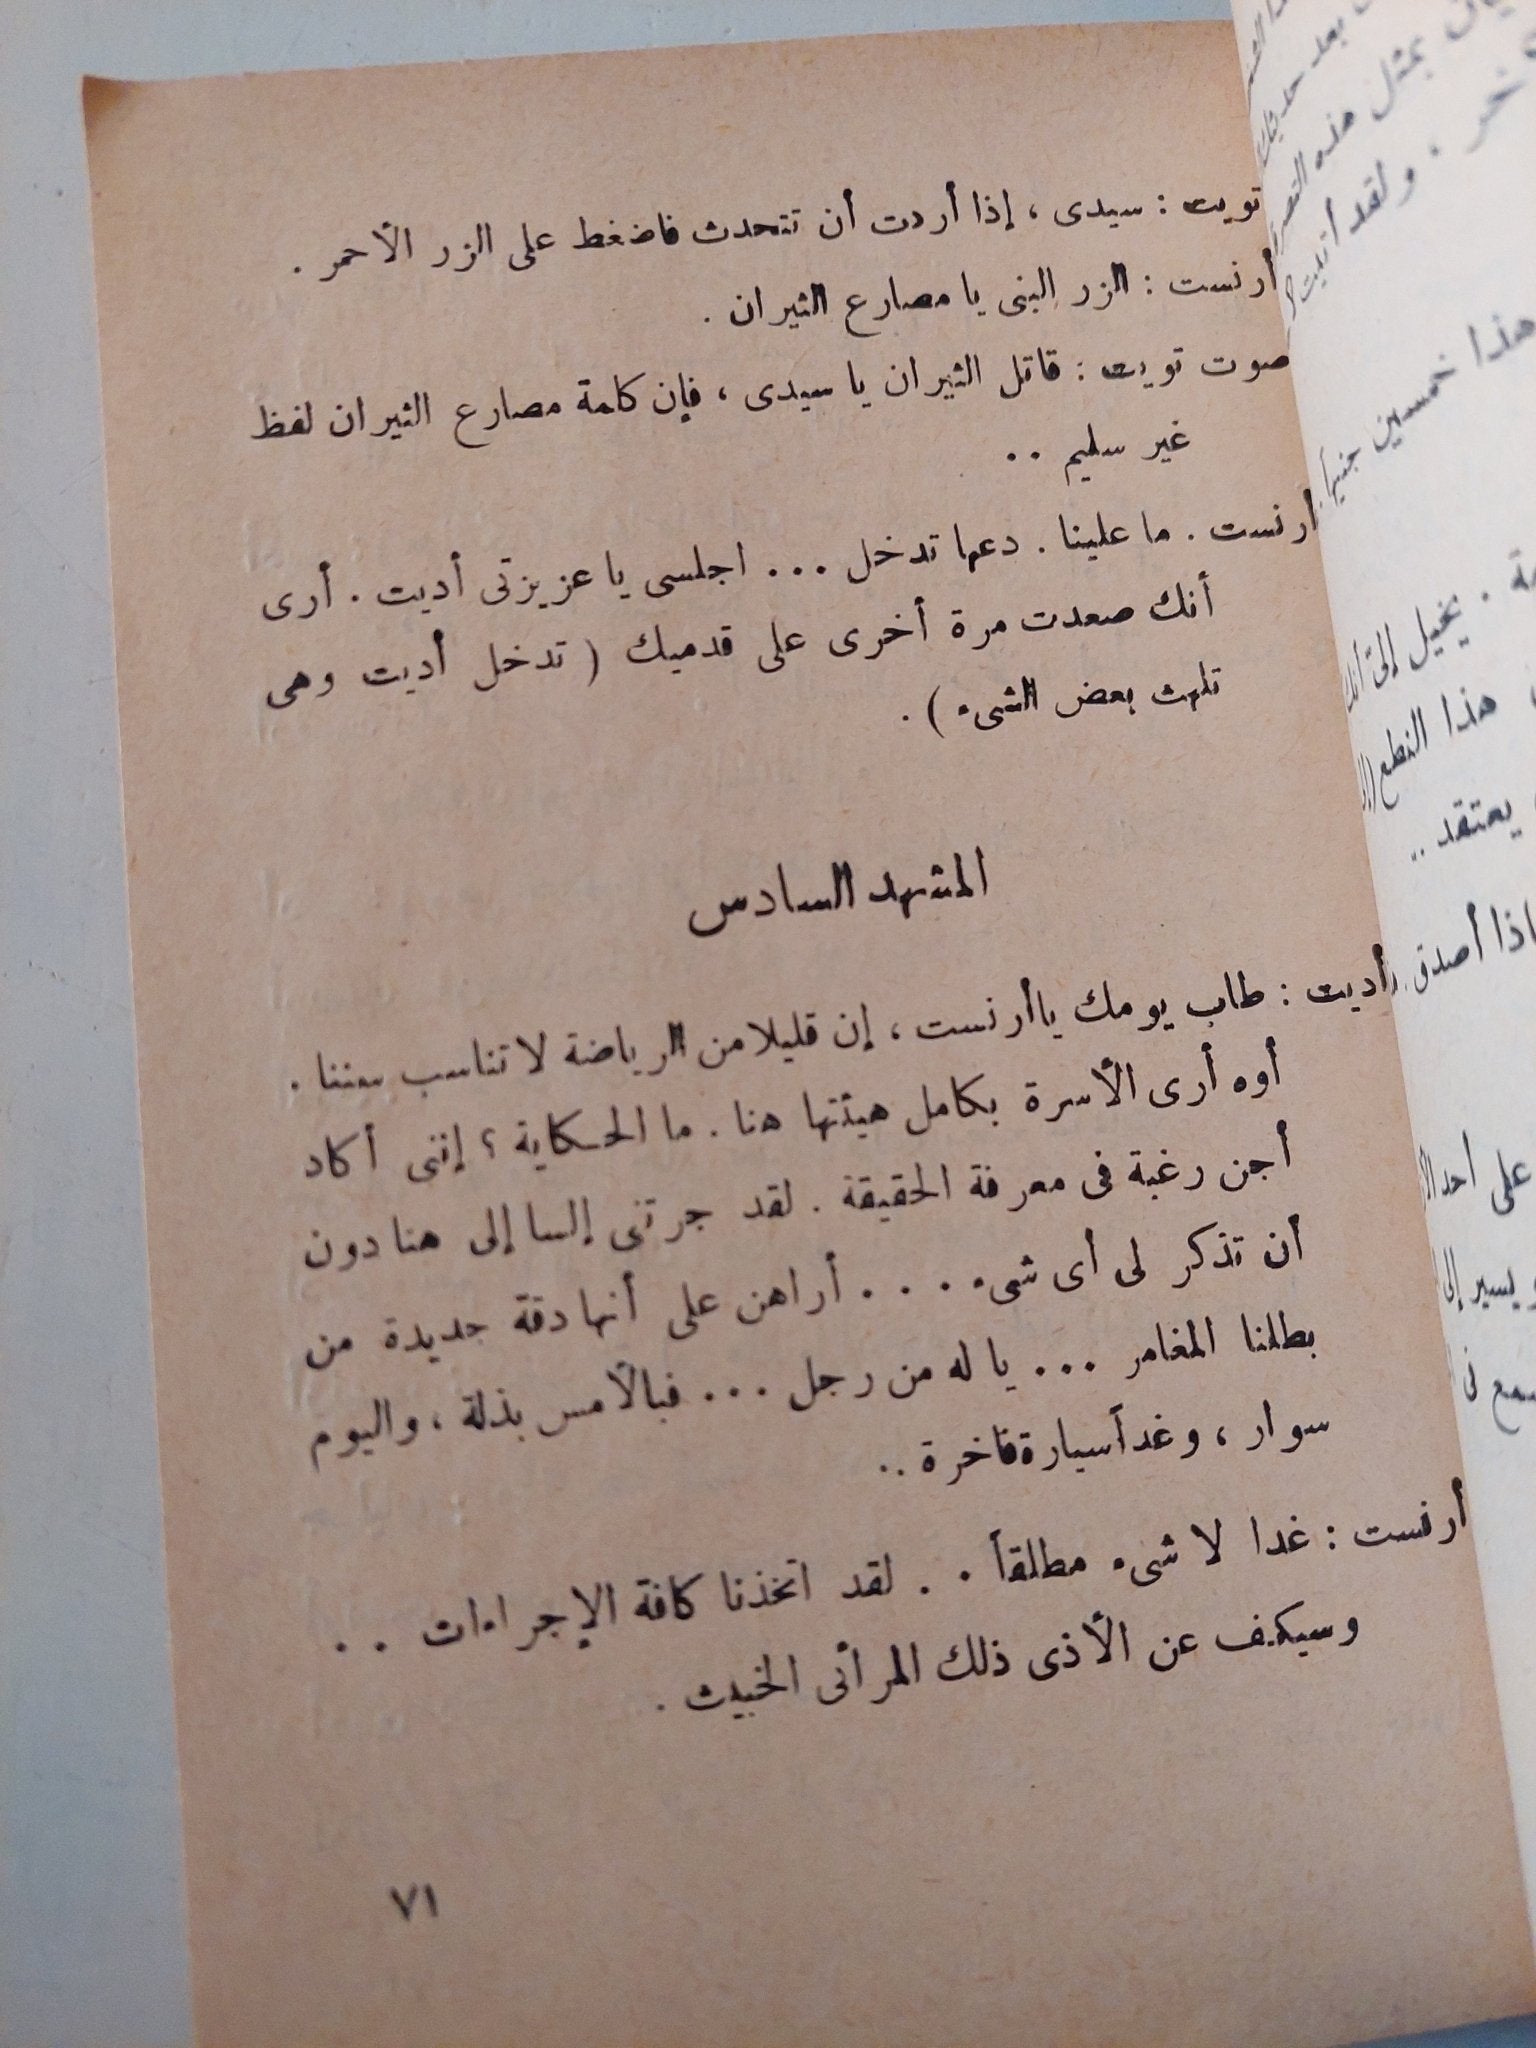 تويت : سيدى ، إذا أردت أن تتحدث فاضغط على الزر الأحمر .
أرنست : الزر البنى يا مصارع الثيران .
صوت تويت : قاتل الثيران يا سيدى ، فإن كلمة مصارع الثيران لفظ
غير سليم ..
أرنست . ما علينا . دعها تدخل ... اجلسى يا عزيزتى أديت . أرى
أنك صعدت مرة أخرى على قدميك ( تدخل أديت وهى
تلهث بعض الشىء ) .
المشهد السادس
أديت : طاب يومك يا أرنست ، إن قليلا من الرياضة لا تناسب سننا .
أوه أرى الأسرة بكامل هيئتها هنا . ما الحكاية ؟ إننى أكاد
أجن رغبة فى معرفة الحقيقة . لقد جرتنى إلسا إلى هنا دون
أن تذكر لى أى شىء . . . أراهن على أنها دقة جديدة من
بطلنا المغامر ... يا له من رجل ... فبالأمس بذلة ، واليوم
سوار ، وغداً سيارة فاخرة ..
أرنست : غدا لا شىء مطلقاً . . لقد اتخذنا كافة الإجراءات . .
وسيكف عن الأذى ذلك المرأئى الخبيث .
٧١
بعد حديثك
بمثل هذه
ولقد أتيت
هذا خمسين جنيهاً .
يخيل إلىّ أنك
هذا النطع
يعتقد ..
أصدق
على أحد
ويسير إلى